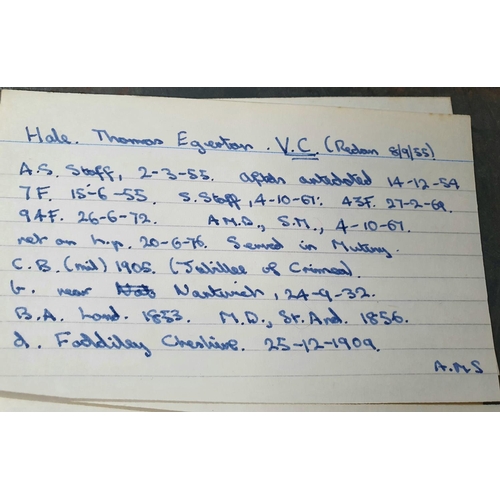 Hale. Thomas Egerton. V.C. (Redan 8/9/55)
A.S. Staff, 2-3-55. after antedated 14-12-54
7F. 15-6-55. S. Staff, 4-10-61. 43F. 27-2-69.
94F. 26-6-72. A.M.D., S.M., 4-10-67.
ret on h.p. 20-6-76. Served in Mutiny.
C.B. (mil) 1905. (Jubilee of Crimea)
b. near Nantwich, 24-9-32.
B.A. Lond. 1853. M.D., St. And. 1856.
d. Faddiley Cheshire. 25-12-1909.
A.M.S